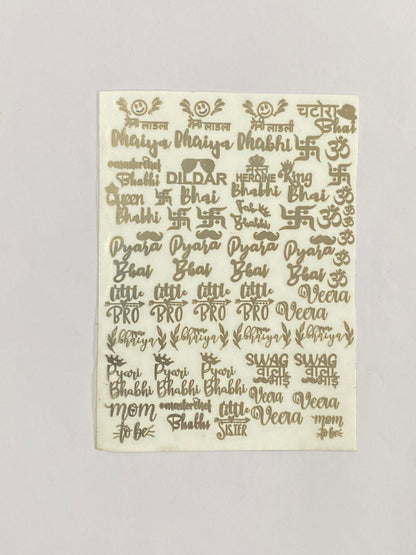 मेरा लाडला मेरा लाडला मेरी लाडली चटोरा
Bhaiya Bhaiya Bhabhi Bhai
ॐ
#masterchef DILDAR HEROINE King
Bhabhi Bhai Bhabhi Bhai
ॐ
Queen
Bhabhi Bhabhi
ॐ
ॐ
Pyara Pyara Pyara Pyara
Bhai Bhai Bhai Bhai
ॐ
ॐ
little little little little Veera
BRO BRO BRO BRO Veera
bhaiya bhaiya bhaiya bhaiya
Pyari Pyari Pyari SWAG SWAG
Bhabhi Bhabhi Bhabhi वाला वाला
भाई भाई
Veera Veera
mom #masterchef little Veera mom
to be Bhabhi SISTER to be